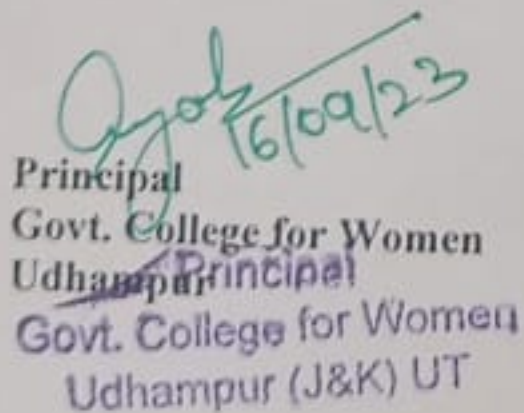 16/09/23
Principal
Govt. College for Women
Udhampur
Principal
Govt. College for Women
Udhampur (J&K) UT